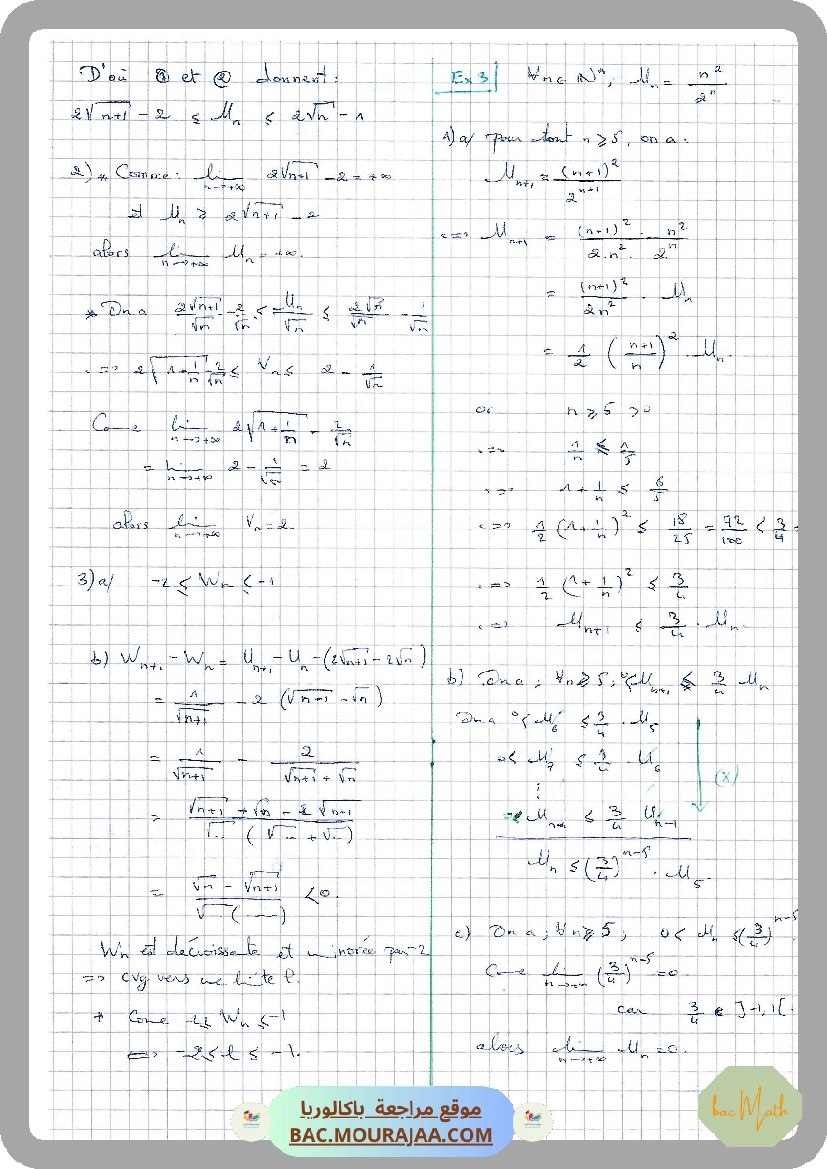 D'où ① et ② donnent :
2√(n+1) - 2 ≤ Un ≤ 2√n - 1
2) * Comme : lim n→+∞ 2√(n+1) - 2 = +∞
et Un ≥ 2√(n+1) - 2
alors lim n→+∞ Un = +∞.
* On a 2√(n+1)/√n - 2/√n ≤ Un/√n ≤ 2√n/√n - 1/√n
<=> 2√(1+1/n) - 2/√n ≤ Vn ≤ 2 - 1/√n
Come lim n→+∞ 2√(1+1/n) - 2/√n
= lim n→+∞ 2 - 1/√n = 2
alors lim n→+∞ Vn = 2.
3) a/ -2 ≤ Wn ≤ -1
b) Wn+1 - Wn = Un+1 - Un - (2√(n+1) - 2√n)
= 1/√(n+1) - 2 (√(n+1) - √n)
= 1/√(n+1) - 2/(√(n+1) + √n)
= (√(n+1) + √n - 2√(n+1))/(√... (√... + √...))
= (√n - √(n+1))/(√...(...)) < 0.
Wn est décroissante et minorée par -2
=> cvg vers une limite l.
* Come -2 ≤ Wn ≤ -1
<=> -2 ≤ l ≤ -1.
Ex 3 ∀n ∈ ℕ*, Un = n²/2ⁿ
1) a/ pour tout n ≥ 5, on a :
Un+1 = (n+1)²/2ⁿ⁺¹
<=> Un+1 = (n+1)²/(2.n²) . n²/2ⁿ
= (n+1)²/(2n²) . Un
= 1/2 ((n+1)/n)² . Un.
or n ≥ 5 > 0
<=> 1/n ≤ 1/5
<=> 1 + 1/n ≤ 6/5
<=> 1/2 (1+1/n)² ≤ 18/25 = 72/100 < 3/4 =
<=> 1/2 (1+1/n)² ≤ 3/4
<=> Un+1 ≤ 3/4 . Un.
b) On a ; ∀n ≥ 5 ; 0 < Un+1 ≤ 3/4 Un
On a 0 < U6 ≤ 3/4 . U5
0 < U7 ≤ 3/4 . U6
⋮
(×)
Un ≤ 3/4 Un-1
Un ≤ (3/4)ⁿ⁻⁵ . U5.
c) On a ; ∀n ≥ 5 ; 0 < Un ≤ (3/4)ⁿ⁻⁵ .
Come lim n→+∞ (3/4)ⁿ⁻⁵ = 0
car 3/4 ∈ ]-1,1[.
alors lim n→+∞ Un = 0.
موقع مراجعة باكالوريا
BAC.MOURAJAA.COM
bac Math